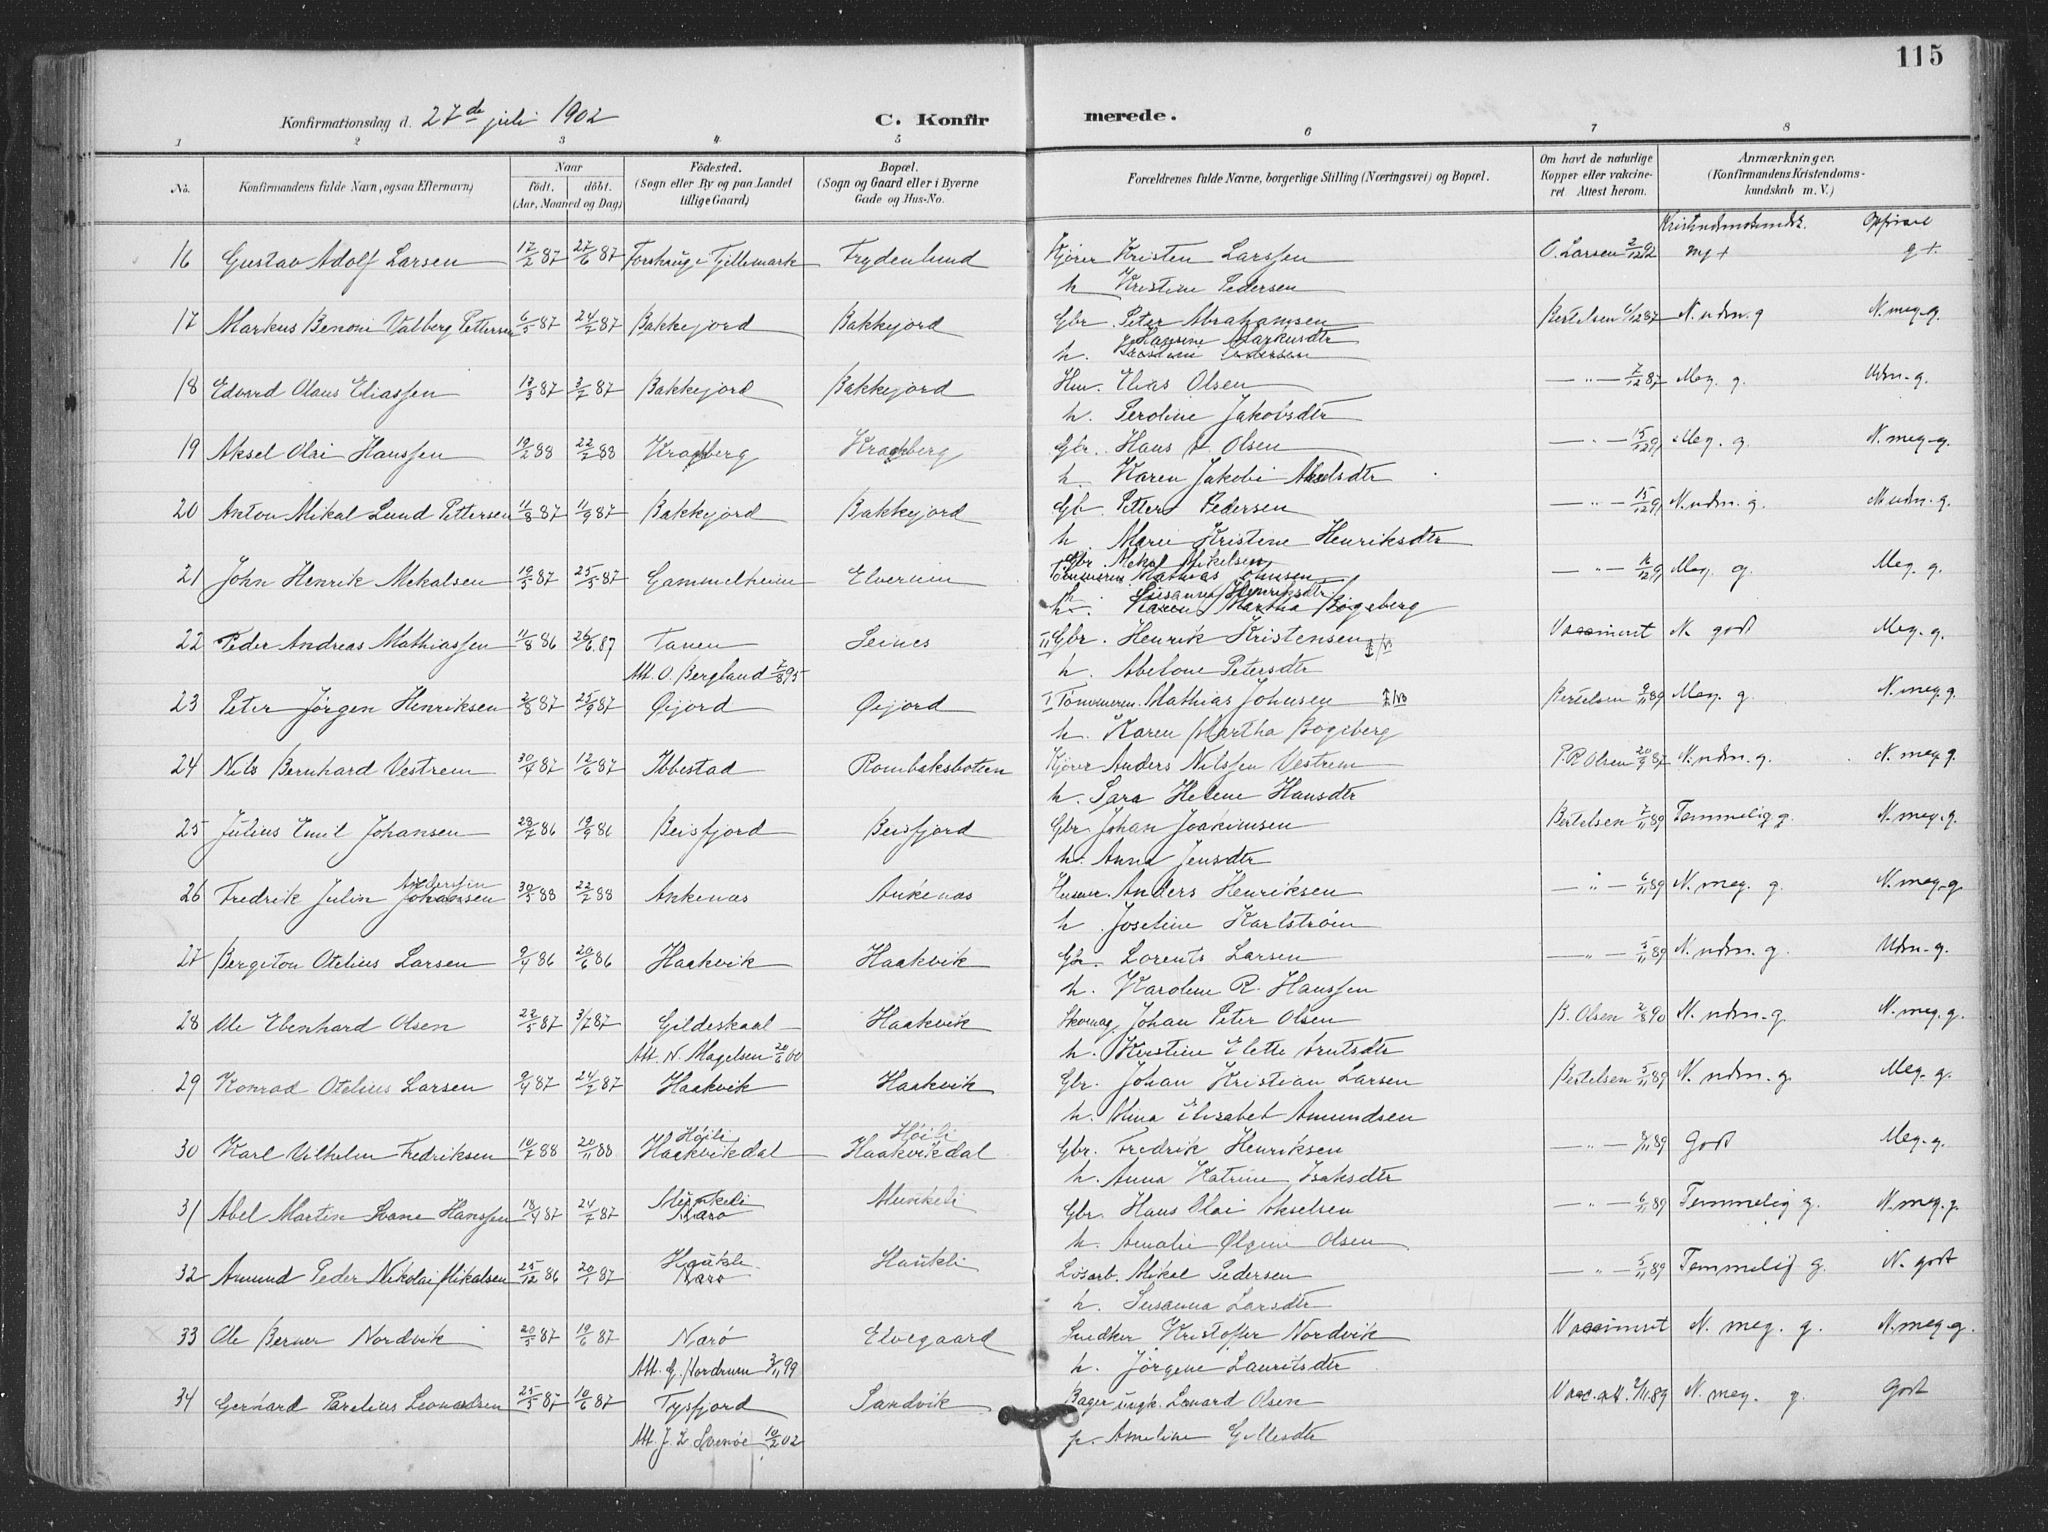 115
Konfirmationsdag d. 27de juli 1902 C. Konfirmerede.
1 2 3 4 5 6 7 8
No. Konfirmandens fulde Navn, ogsaa Efternavn) Naar födt. döbt. (Aar, Maaned og Dag) Födested. (Sogn eller By og paa Landet tillige Gaard) Bopæl. (Sogn og Gaard eller i Byerne Gade og Hus-No. Forældrenes fulde Navne, borgerlige Stilling (Næringsvei) og Bopæl. Om havt de naturlige Kopper eller vakcineret Attest herom. Anmærkninger. (Konfirmandens Kristendomskundskab m. V.)
Kristendomskundsk. Opførsel
16 Gustav Adolf Larsen 17/2 87 27/6 87 Frydenlund Kjører Kristen Larssen O. Larsen 2/12 92 mg + g +
h Kristine Pedersen
17 Markus Benoni Valberg Pettersen 6/5 87 24/7 87 Bakkejord Bakkejord Gbr. Peter Abrahamsen Bertelsen 6/12 87 N. udm. g N. meg. g.
Hansine Markusdtr
h.
18 Edvard Olaus Eliassen 13/3 87 3/7 87 Bakkejord Bakkejord Hm. Elias Olsen — " — 7/12 87 Meg. g. Udm. g.
h. Peroline Jakobsdtr
19 Aksel Olai Hanssen 19/2 88 22/7 88 Kragberg Kragberg Gbr. Hans A. Olsen — " — 15/12 91 Meg. g. N. meg. g.
h. Karen Jakobi Akselsdtr
20 Anton Mikal Lund Pettersen 11/8 87 11/9 87 Bakkejord Bakkejord Gb. Petter Pedersen — " — 15/12 91 N. udm. g. N. udm. g.
h. Marie Kristine Henriksdtr
Gbr. Mekal Mikelsen
21 John Henrik Mekalsen 19/3 87 25/5 87 Gammelheim Elvenim Tømmerm. Mathias Johnsen — " — 16/12 91 Meg. g. Meg. g.
Susanna Henriksdtr
h. Karen Martha Bogeberg
22 Peder Andreas Mathiassen 11/8 86 26/6 87 Tanen Seines II Gbr. Henrik Kristensen Vaccineret N. godt Meg. g.
Att. O. Bergland 7/8 95 h. Abelone Petersdtr
23 Peter Jørgen Henriksen 2/8 87 25/9 87 Øijord Øijord I Tømmerm. Mathias Johnsen NB Bertelsen 9/11 89 Meg. g. N. meg. g.
h. Karen Martha Bogeberg
24 Nils Bernhard Vestrem 30/4 87 12/6 87 Ibbestad Rombaksbotten Kjører Anders Nilssen Vestrem P. R Olsen 20/9 87 N. udm. g. N. meg. g.
h. Sara Helene Hansdtr
25 Julius Emil Johansen 28/7 86 19/9 86 Beisfjord Beisfjord Gbr. Johan Joakimsen Bertelsen 7/11 89 Temmelig g. N. meg. g.
h. Anna Jensdtr
Anderssen
26 Fredrik Julin Johansen 30/5 88 22/7 88 Ankenas Ankenas Husm. Anders Henriksen — " — 6/11 89 N. meg. g. N. meg. g.
h. Josefine Karlstrøm
27 Bergiton Otelius Larsen 9/4 86 20/6 86 Haakvik Haakvik Gbr. Lorents Larsen — " — 5/11 89 N. udm. g. Udm. g.
h. Karoline R. Hanssen
28 Ole Ebenhard Olsen 22/5 87 3/7 87 Gildeskaal Haakvik Johan Peter Olsen B. Olsen 2/8 90 N. udm. g. N. meg. g.
Att. N. Magelsen 20/6 00 h. Kirstine Elette Arntsdtr
29 Konrad Otelius Larsen 9/4 87 24/7 87 Haakvik Haakvik Gbr. Johan Kristian Larsen Bertelsen 5/11 89 N. udm. g. Meg. g.
h. Alma Elisabet Amundsen
Høili Høili
30 Karl Vilhelm Fredriksen 10/7 88 20/11 88 Haakvikdal Haakvikdal Gbr. Fredrik Henriksen — " — 9/11 89 Godt Meg. g.
h. Anna Katrine Isaksdtr
Munkeli
31 Abel Martin Svane Hanssen 18/4 87 24/7 87 Narø Munkeli Gbr. Hans Olai Akselsen — " — 6/11 89 Temmelig g. N. meg. g.
h. Amalie Olgine Olsen
Haukli
32 Amund Peder Nikolai Mikalsen 25/12 86 20/1 87 Narø Haukli Løsarb. Mikal Pedersen — " — 5/11 89 Temmelig g. N. godt
h. Susanna Larsdtr
33 Ole Berner Nordvik 20/5 87 19/6 87 Narø Elvegaard Snedker Kristoffer Nordvik Vaccineret N. meg. g. N. meg. g.
Att. G. Nordrum 3/11 99 h. Jørgene Lauritsdtr
34 Gerhard Parelius Leonardsen 25/5 87 10/6 87 Tysfjord Sandvik Bager ungk. Leonard Olsen Vacc. att. 9/11 89 N. meg. g. Godt
Att. J. L. Svenøe 10/2 02 p. Ameline Gillesdtr